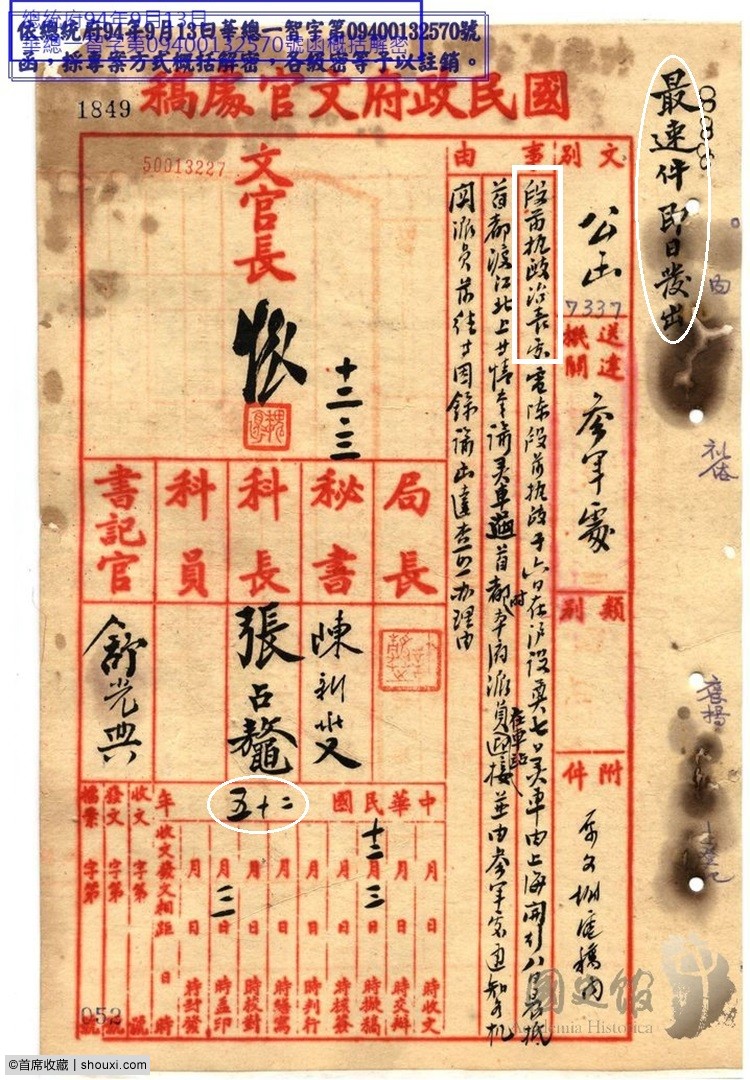 總統府94年9月13日
華總一智字第09400132570號函概括解密
依總統府94年9月13日華總一智字第09400132570號
函,採專案方式概括解密,各級密等予以註銷。
1849
國民政府文官處稿
最速件即日發出
文別
公函
7337
送達機關
參軍處
類別
附件
事由
段前執政治喪處電陳段前執政于六日在沪設奠七日灵車由上海開行八日晨抵
首都渡江北上等情奉諭灵車過首都時本府派員在車站迎接並由參軍處通知各机
関派員前往等因錄諭函達查照办理由
50013227
文官長
十二、三
局長
秘書
科長
科員
書記官
張占鰲
舒光典
中華民國
二十五
年
月 日 時收文
月 日 時交辦
十二月三日 時擬稿
月 日 時核發
月 日 時判行
月 日 時繕寫
月 日 時校對
月三日 時蓋印
月 日 時封發
收文發文相距 日 時
收文 字第 號
發文 字第 號
檔案 字第 號
052
國史館
Academia Historica
©首席收藏 | shouxi.com